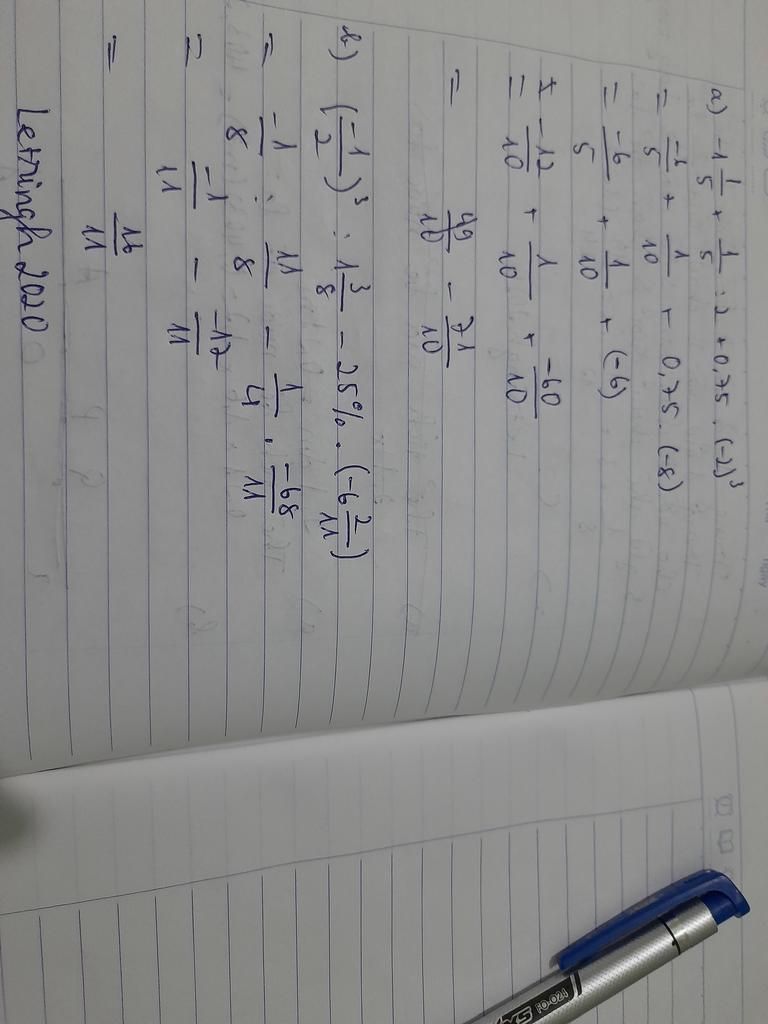 a) -1 1/5 + 1/5 : 2 + 0,75 . (-2)³
= -6/5 + 1/10 + 0,75 . (-8)
= -6/5 + 1/10 + (-6)
= -12/10 + 1/10 + -60/10
= 49/10 - 71/10
b) (-1/2)³ : 1 3/8 - 25% . (-6 2/11)
= -1/8 : 11/8 - 1/4 . -68/11
= -1/11 - -17/11
= 16/11
Letringh2020
FO-024